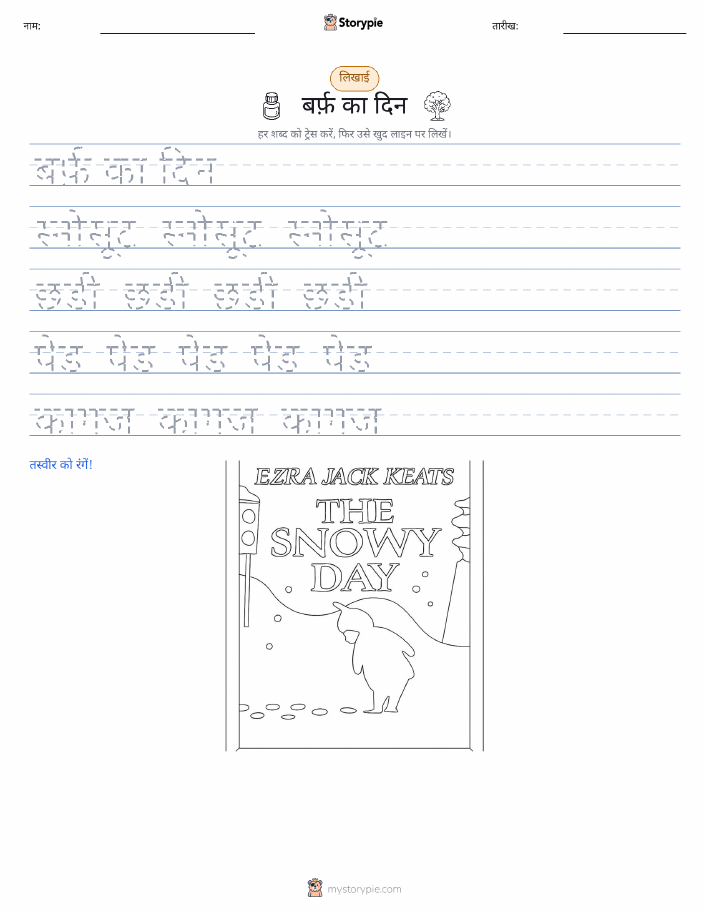 नाम: Storypie तारीख:
लिखाई
बर्फ़ का दिन
हर शब्द को ट्रेस करें, फिर उसे खुद लाइन पर लिखें।
बर्फ़ का दिन
स्नोसूट स्नोसूट स्नोसूट
छडी छडी छडी छडी
पेड पेड पेड पेड पेड
कागज कागज कागज
तस्वीर को रंगें!
EZRA JACK KEATS
THE
SNOWY
DAY
mystorypie.com